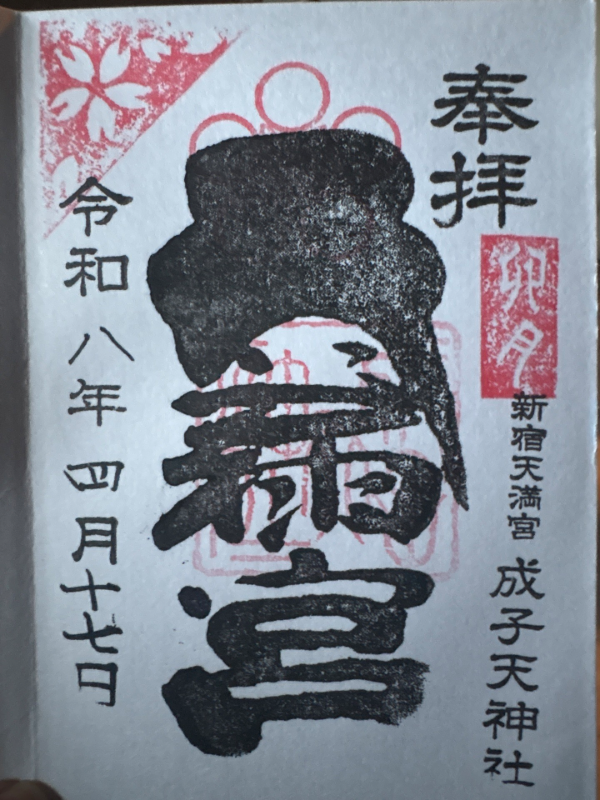 奉拝
卯月
新宿天満宮 成子天神社
天満宮
令和八年四月十七日